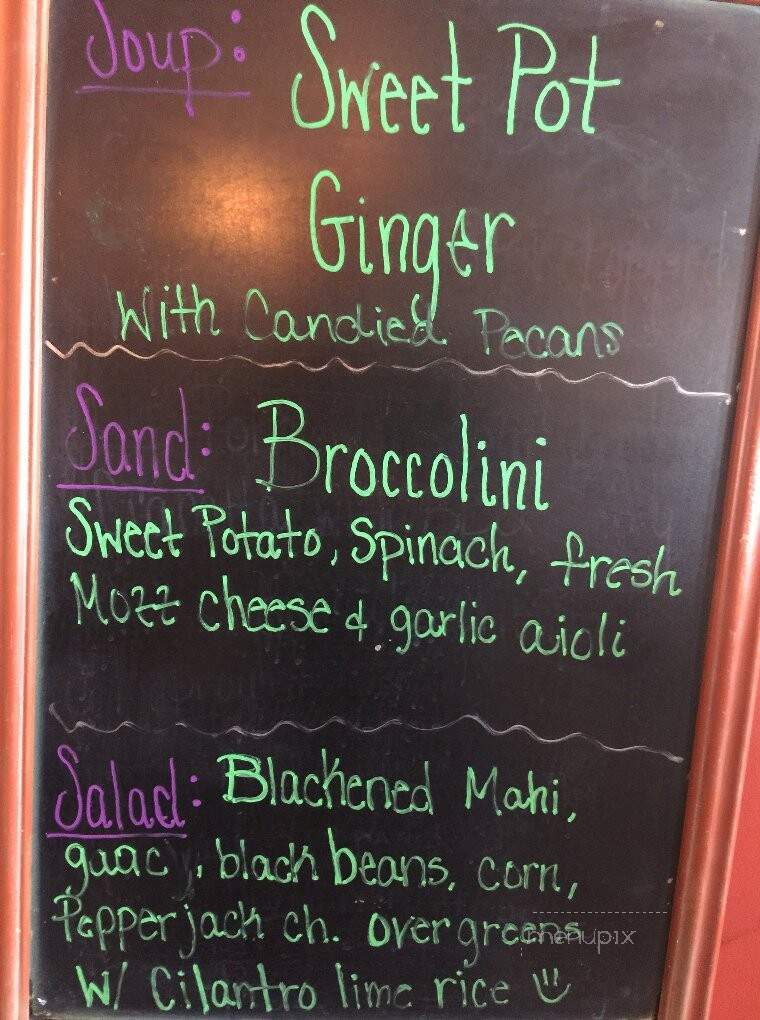 Soup: Sweet Pot
Ginger
With Candied Pecans
Sand: Broccolini
Sweet Potato, Spinach, fresh
Mozz cheese & garlic aioli
Salad: Blackened Mahi,
guac, black beans, corn,
Pepperjack ch. over greens
W/ Cilantro lime rice
menupix